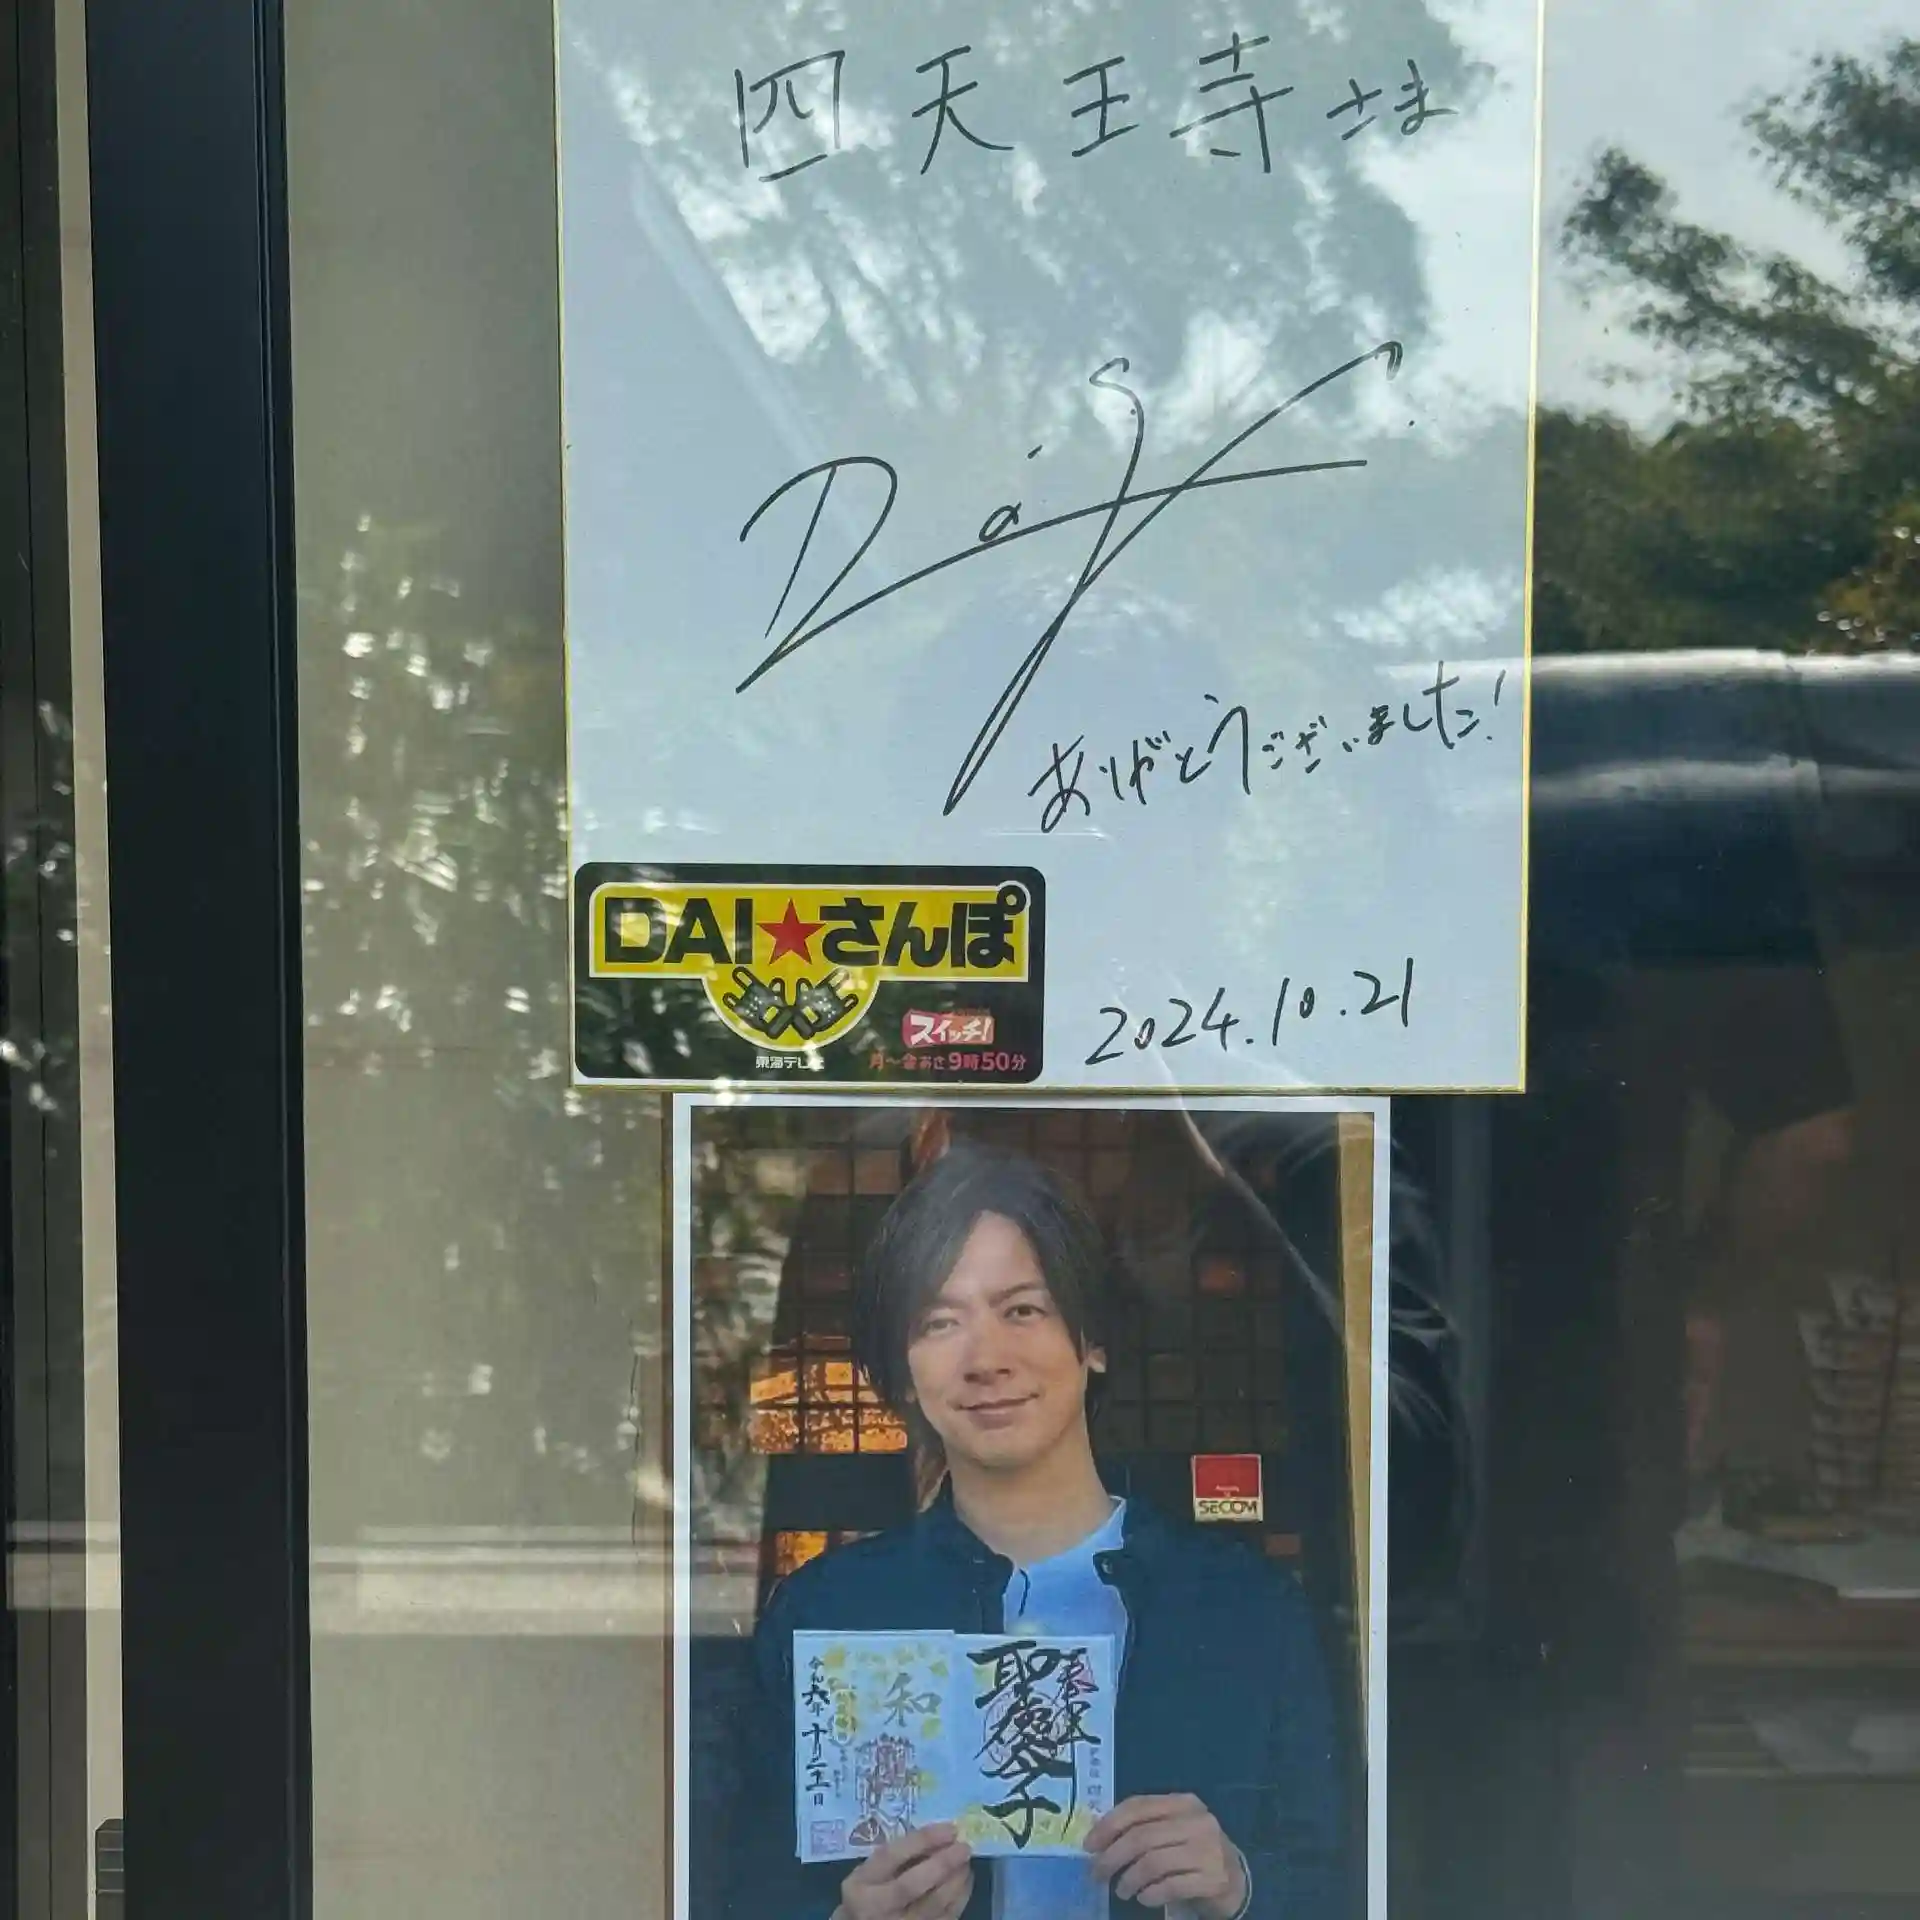 四天王寺さま
DaiG
ありがとうございました!
DAI★さんぽ
スイッチ!
東海テレビ
月〜金あさ9時50分
2024.10.21
SECOM
奉拝
聖徳太子
和
令和六年十月二十一日